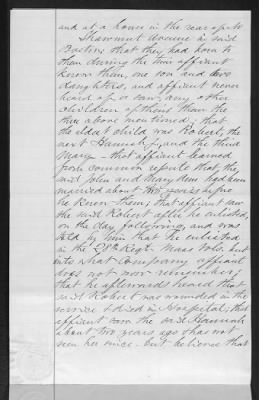 and at a house in the rear of
Shawmut Avenue in said
Boston; that they had born to
them during the time affiant
knew them, one son and two
daughters, and affiant never
heard of or saw any other
children of theirs than the
three above mentioned; that
the eldest child was Robert, the
next Hannah J, and the third
Mary - that affiant learned
from common repute that the
said John and Mary had been
married about two years before
he knew them; that affiant saw
the said Robert after he enlisted,
on the day following, and was
told by him that he enlisted
in the Regt. Mass Vols. but
into what Company affiant
does not now remember;
that he afterward heard that
said Robert was wounded in the
service & died in Hospital; that
affiant saw the said Hannah
about two years ago & has not
seen her since. but believes that